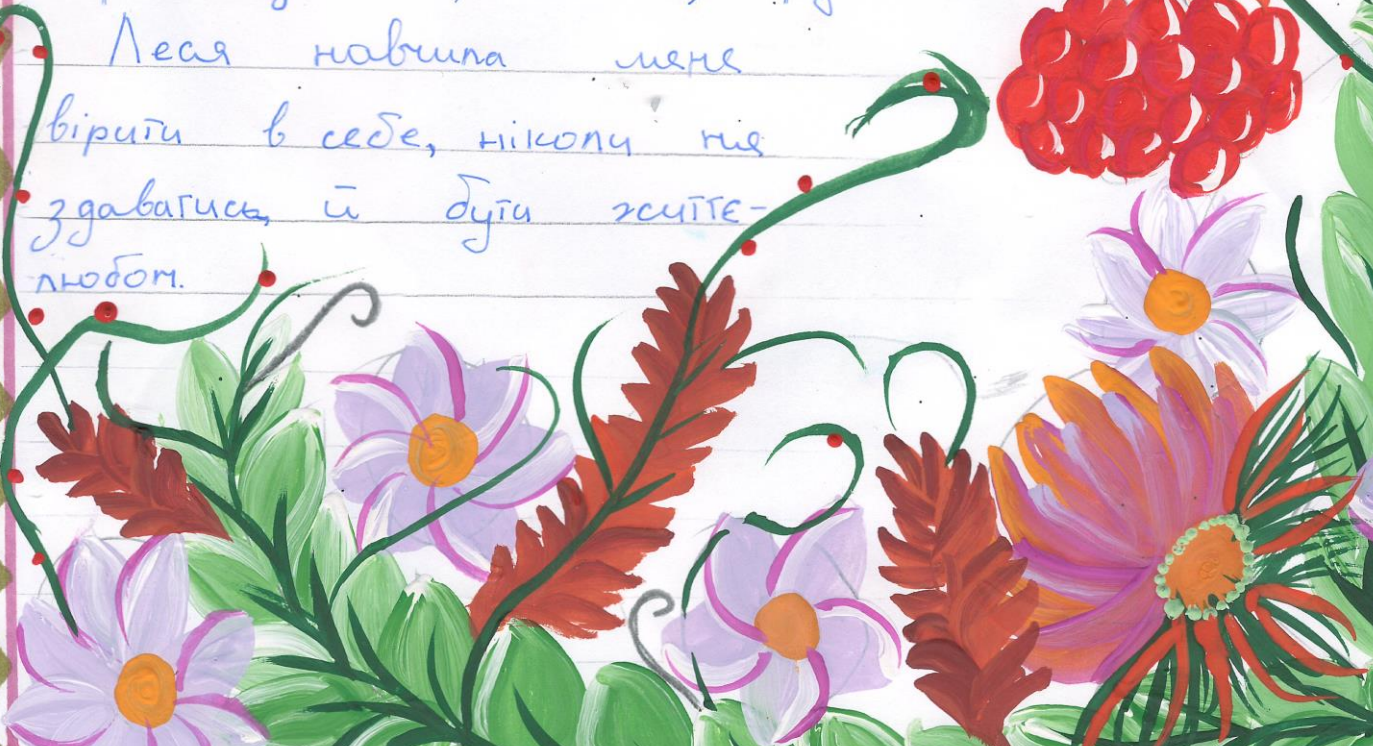 Леся навчила мене
вірити в себе, ніколи не
здаватись, й бути життє-
любом.